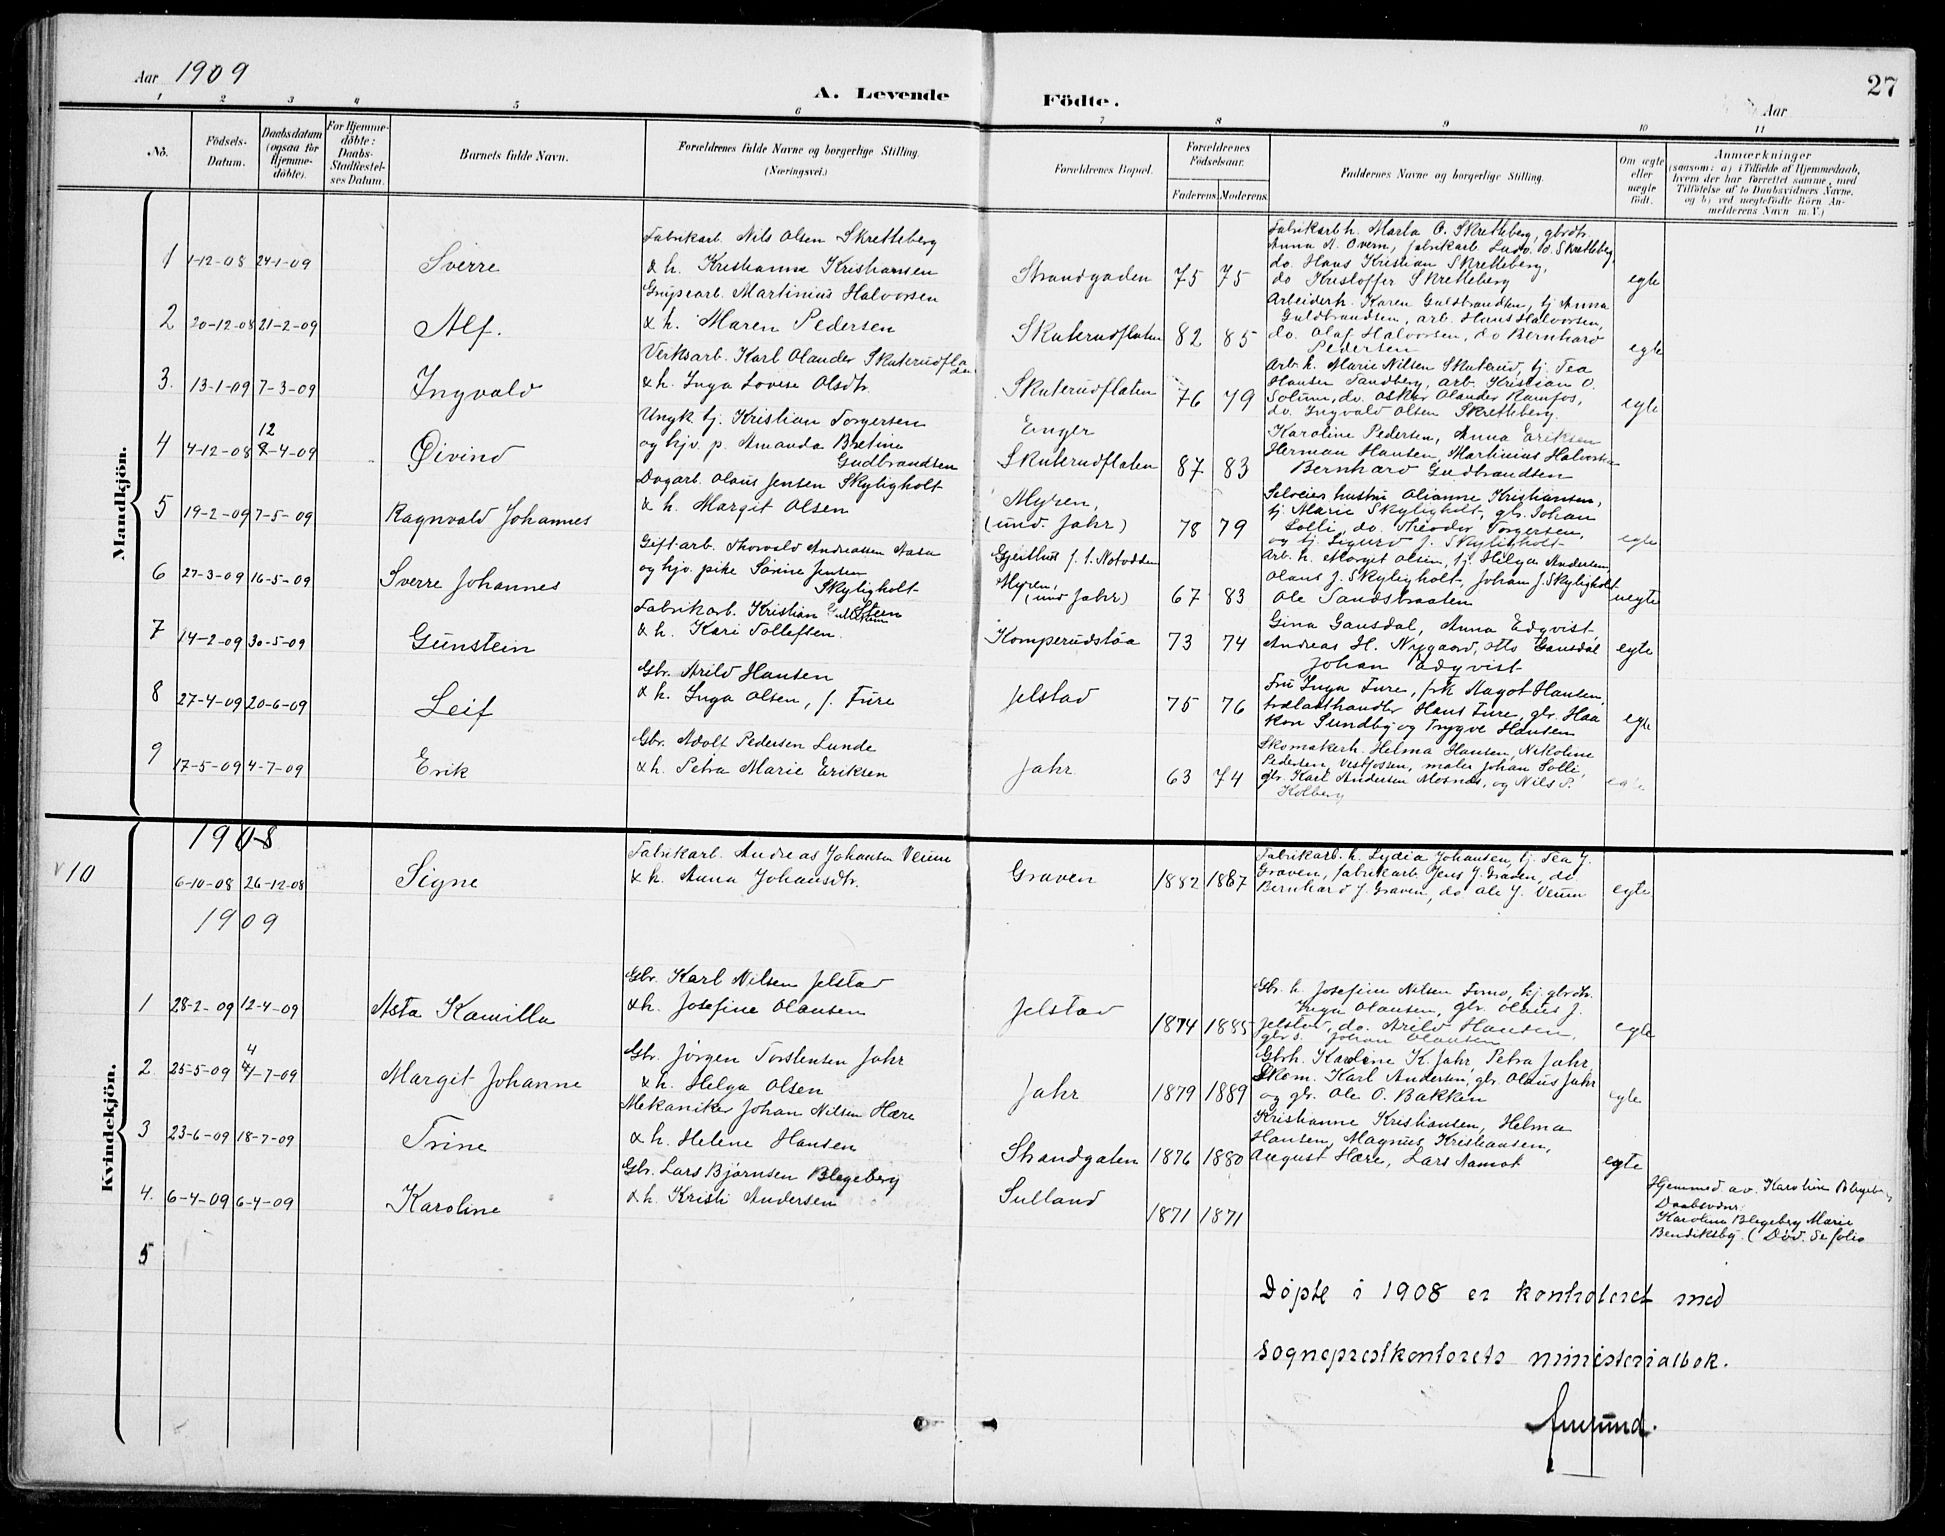 Aar 1909
27
A. Levende Födte.
Aar
1 2 3 4 5 6 7 8 9 10 11
No.
Födsels-Datum.
Daabsdatum (ogsaa for Hjemme-döbte).
For Hjemme-döbte: Daabs-Stadfæstelses Datum.
Barnets fulde Navn.
Forældrenes fulde Navne og borgerlige Stilling. (Næringsvei.)
Forældrenes Bopæl.
Forældrenes Födselsaar.
Faderens. Moderens.
Faddernes Navne og borgerlige Stilling.
Om ægte eller uægte födt.
Anmærkninger
(saasom: a) i Tilfælde af Hjemmedaab,
hvem der har forrettet samme, med
Tilföielse af to Daabsvidners Navne,
og b) ved uægtefödte Börn An-
melderens Navn m. V.)
Mandkjön.
1 1-12-08 24-1-09 Sverre
Fabrikarb. Nils Olsen Skretteberg
& h. Kristianne Kristiansen
Strandgaden 75 75
Fabrikarbh. Marta O. Skretteberg, gbrdtr.
Anna A. Overn, fabrikarb. Ludv. O. Skretteberg
do. Hans Kristian Skretteberg,
do Kristoffer Skretteberg
egte
2 20-12-08 21-2-09 Alf.
Grupearb. Martinius Halvorsen
& h. Maren Pedersen
Skuterudflaten 82 85
Arbeiderh. Karen Guldbrandsen, tj Anna
Guldbrandsen, arb. Hans Halvorsen,
do. Olaf Halvorsen, do Bernhard
Pedersen
egte
3. 13-1-09 7-3-09 Ingvald
Verksarb. Karl Olander Skuterudfla
den
& h. Inga Lovise Olsdtr.
Skuterudflaten 76 79
Arb. h. Marie Nilsen Skuterud, tj. Tea
Hansen Sandberg, arb. Kristian O.
Solum, do. Oskar Olander Ramfos,
do. Ingvald Olsen Skretteberg.
egte
4 4-12-08 12
-4-09 Øivind
Ungk. tj. Kristian Torgersen
og hjv. p. Amanda Betine
Gudbrandsen
Enger
Skuterudflaten 87 83
Karoline Pedersen, Anna Eriksen
Herman Hansen, Martinius Halvorsen
Bernhard Gudbrandsen
5 19-2-09 7-5-09 Ragnvald Johannes
Dagarb. Olaus Jensen Skyligholt
& h. Margit Olsen
Myren,
(und. Jahr) 78 79
Selveier hustru Olianne Kristiansen,
tj. Marie Skyligholt, gbr. Johan
Solli, do. Theodor Torgersen,
og tj. Sigurd J. Skyligholt
egte
6 27-3-09 16-5-09 Sverre Johannes
Gift arb. Thorvald Andreassen Aasa
og hjv. pike Sørine Jensen
Skyligholt
Gjeithus f. t. Notodden
Myren,
(und Jahr) 67 83
Arb. h. Margit Olsen, tj. Helga Andersen,
Olaus J. Skyligholt, Johan J. Skyligholt
Ole Sandsbraaten
uegte
7 14-2-09 30-5-09 Gunstein
Fabrikarb. Kristian Steen
& h. Kari Tollefsen.
Komperudstøa 73 74
Gina Gansdal, Anna Edqvist,
Andreas H. Nygaard, Otto Gansdal
Johan Edqvist
egte
8 27-4-09 20-6-09 Leif
Gbr. Arild Hansen
& h. Inga Olsen, f. Fure
Jelstad 75 76
Fru Inga Fure, frk Aagot Hansen,
trælasthandler Hans Fure, gbr. Haa
kon Sundby og Trygve Hansen
egte
9 17-5-09 4-7-09 Erik
Gbr. Adolf Pedersen Lunde
& h. Petra Marie Eriksen
Jahr 63 74
Skomakerh. Helma Hansen, Nikoline
Pedersen, Vestfossen, maler Johan Solli,
gbr. Karl Andersen Mosnæs, og Nils P.
Kolberg
egte
1908
v 10 6-10-08 26-12-08 Signe
Fabrikarb. Andreas Johansen Veum
& h. Anna Johansdtr.
Graven 1882 1887
Fabrikarb. h. Lydia Johansen, tj. Tea J.
Graven, fabrikarb. Jens J. Graven, do
Bernhard J. Graven, do. Ole J. Veum
egte
1909
Kvindekjön.
1 28-2-09 12-4-09 Asta Kamilla
Gbr. Karl Nilsen Jelstad
& h. Josefine Olausen
Jelstad 1874 1885
Gbr. h. Josefine Nilsen Tomo, hj. gbrdtr.
Inga Olausen, gbr. Olaus J.
Jelstad, do. Arild Hansen,
gbrs. Johan Olausen
egte
2. 25-5-09 4
-7-09 Margit Johanne
Gbr. Jørgen Torstensen Jahr
& h. Helga Olsen
Jahr 1879 1889
Gbrh. Karoline K. Jahr, Petra Jahr,
Skom. Karl Andersen, gbr. Olaus Jahr
og gbr. Ole O. Bakken
egte
3 23-6-09 18-7-09 Trine
Mekaniker Johan Nilsen Hære
& h. Helene Hansen
Strandgaten 1876 1880
Kristianne Kristiansen, Helma
Hansen, Magnus Kristiansen,
August Hære, Lars Aamot
egte
4. 6-4-09 6-4-09 Karoline
Gbr. Lars Bjørnsen Blegeberg
& h. Kristi Andersen
Sulland 1871 1871
Hjemmed. av. Karoline Blegeb
Daabsvidner:
Karoline Blegeberg Marie
Bendiksby. (Død. Se folio
5
Døpte i 1908 er kontroleret med
sogneprestkontorets ministerialbok.